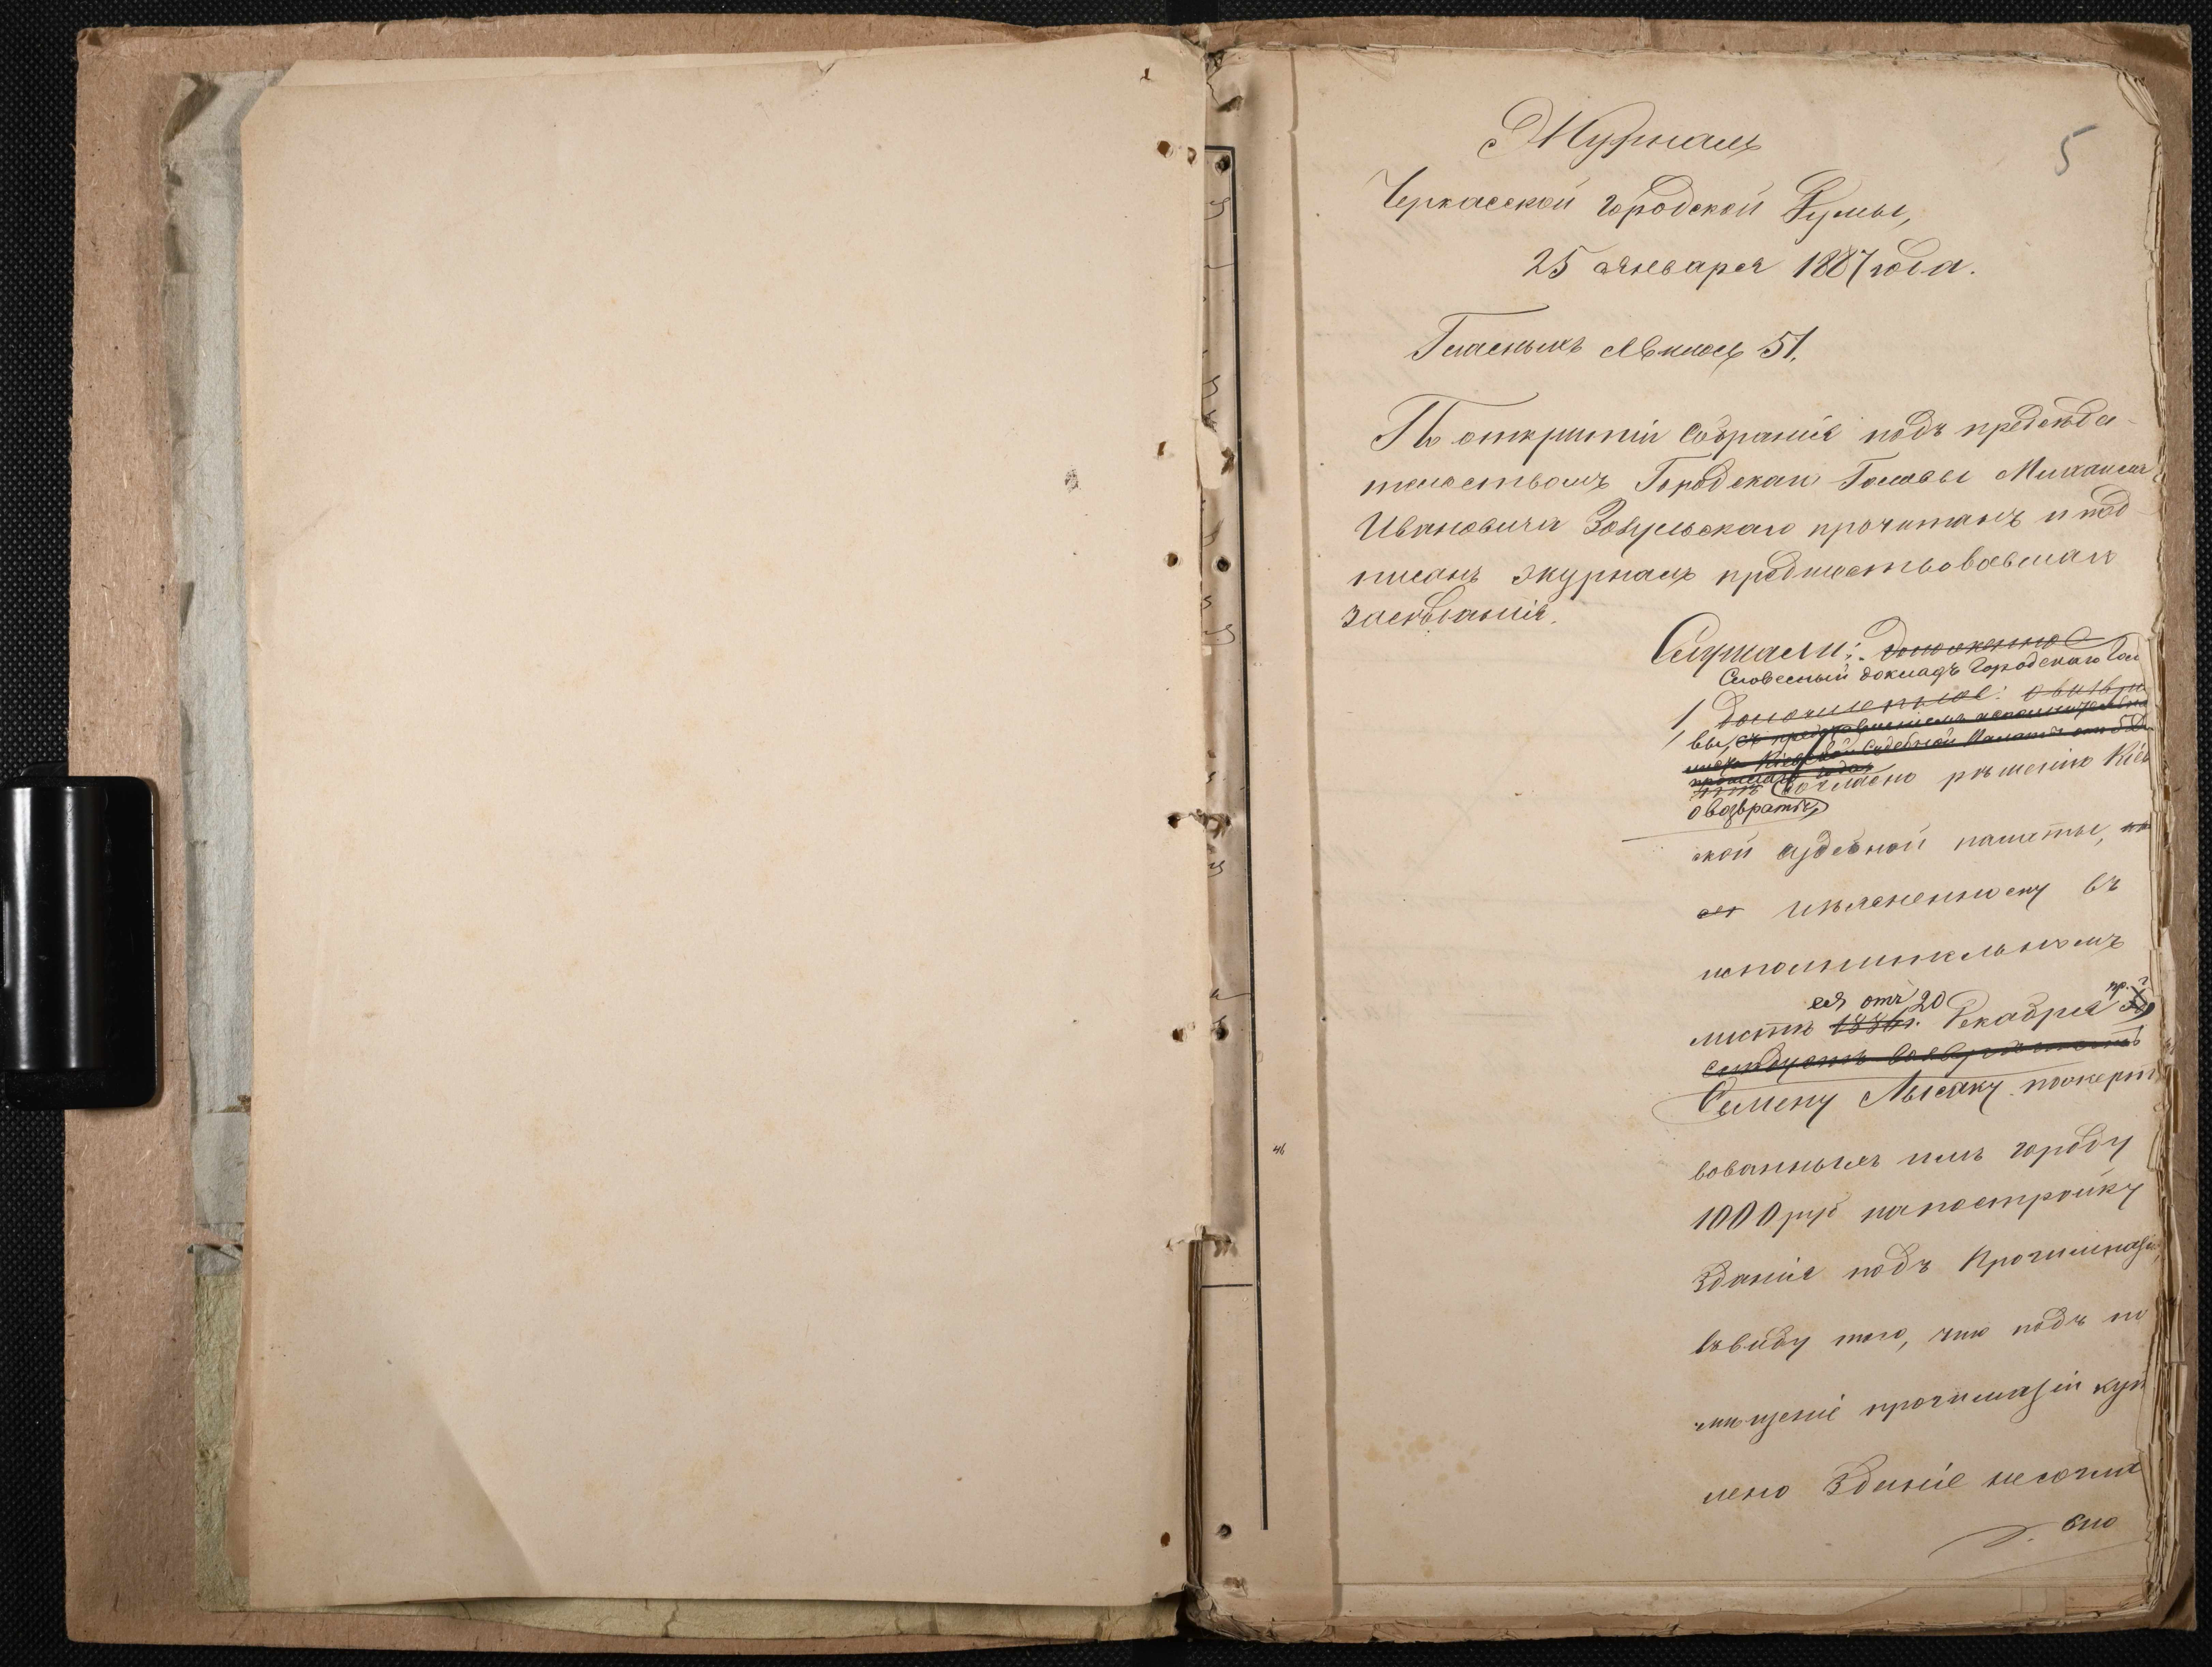 5
Журналъ
Черкасской городской Думы,
25 января 1887 года.
Гласныхъ явилось 51.
По открытіи собранія подъ предсѣда-
тельствомъ Городскаго Головы Михаила
Ивановича Зовульскаго прочитанъ и под-
писанъ журналъ предшествовавшаго
засѣданія.
Слушали:
Словесный докладъ Городскаго Голо
1
вы,
согласно рѣшенію Кіев
о возвратѣ
ской судебной палаты,
изъясненному въ
исполнительномъ
ея отъ 20 пр. г.
листѣ 1886г. Декабря
Семену Лысаку пожерт
вованныхъ имъ городу
1000 руб на постройку
зданія подъ Прогимназі
ввиду того, что подъ по
мѣщеніе прогимназіи куп
лено зданіе несогла
сно
46